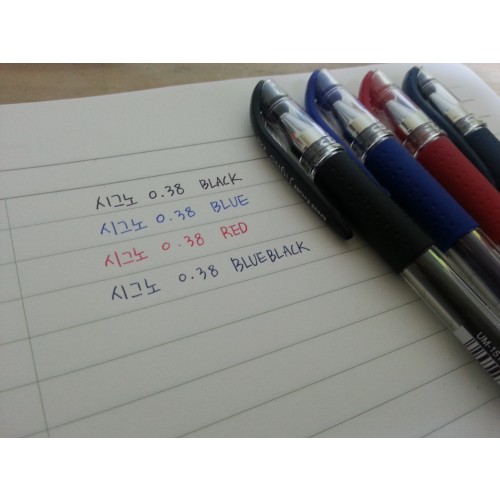 시그노 0.38 BLACK
시그노 0.38 BLUE
시그노 0.38 RED
시그노 0.38 BLUEBLACK